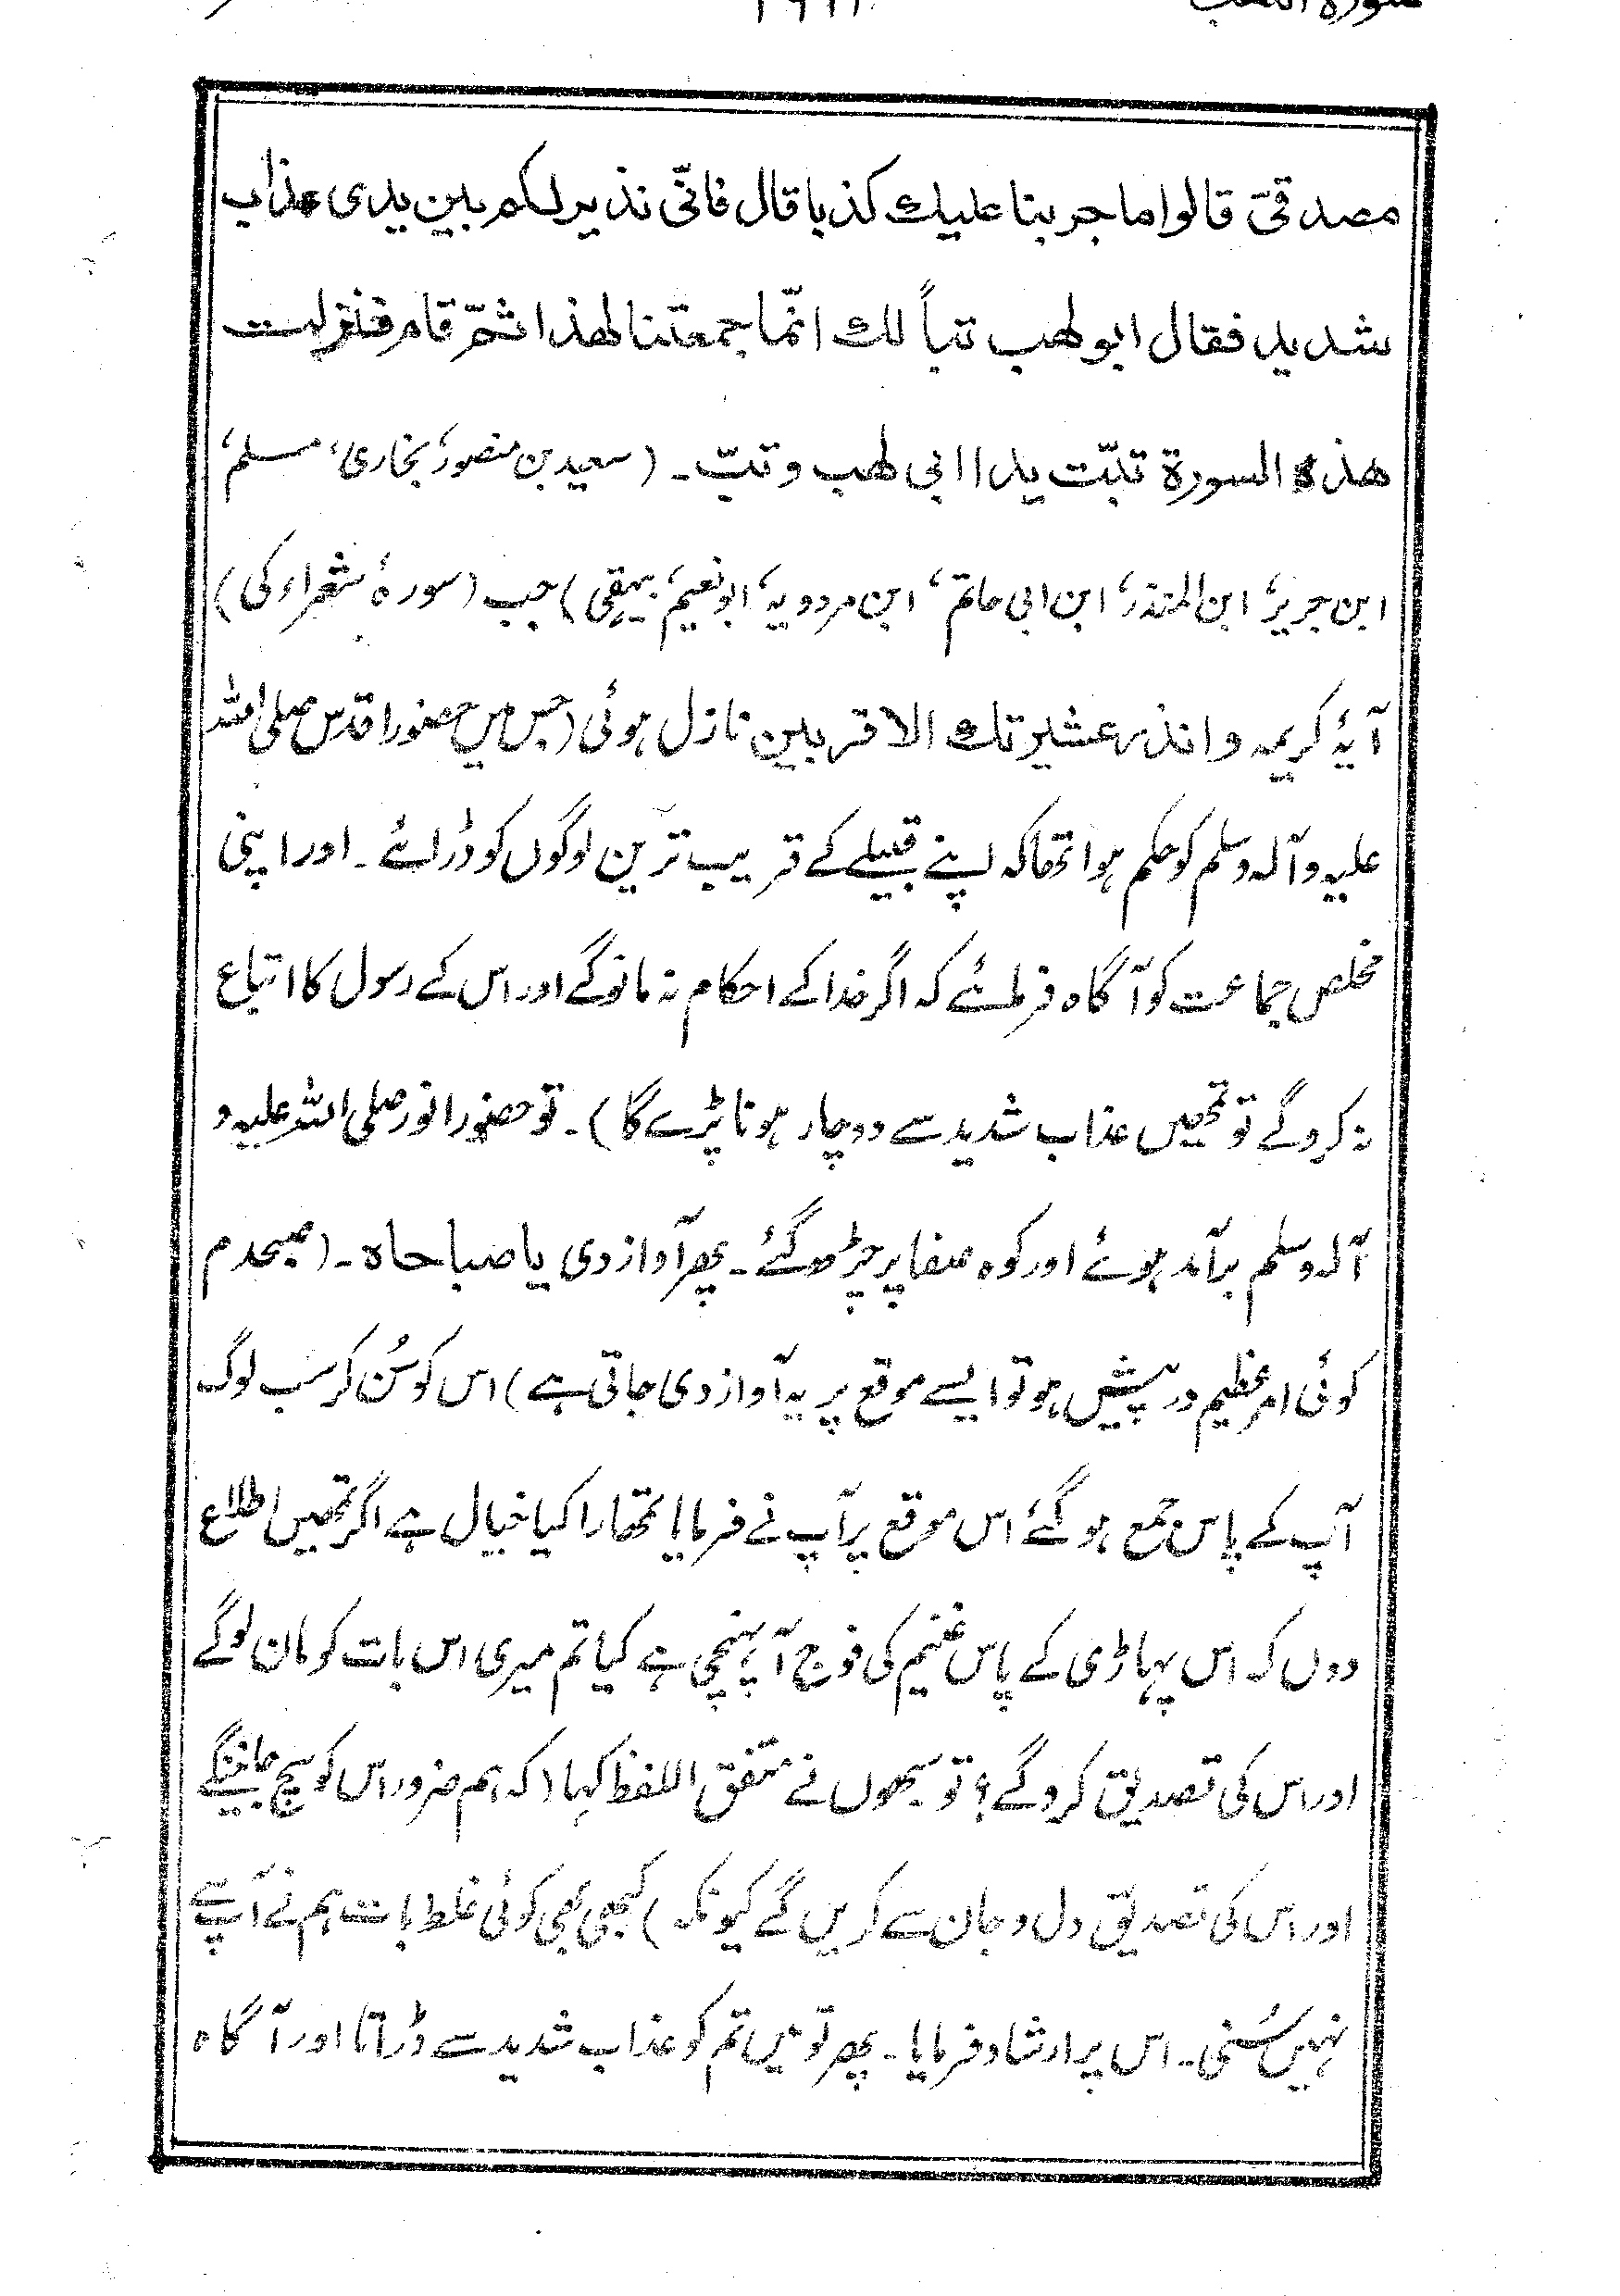 مصدقیّ قالوا ما جربنا علیك کذبا قال فانّی نذیر لکم بین یدی عذاب
شدید فقال ابو لھب تباً لك انّما جمعتنا لھذا ثمّ قام فنزلت
ھذہ السورة تبّت یدا ابی لھب وتبّ۔ (سعید بن منصور، بخاری، مسلم،
ابن جریر، ابن المنذر، ابن ابی حاتم، ابن مردویہ، ابو نعیم، بیہقی) جب (سورۂ شعراء کی)
آیۂ کریمہ وانذر عشیرتك الاقربین نازل ہوئی (جس میں حضور اقدس صلی اللہ
علیہ وآلہ وسلم کو حکم ہوا تھا کہ اپنے قبیلے کے قریب ترین لوگوں کو ڈرائے۔ اور اپنی
مخلص جماعت کو آگاہ فرمائے کہ اگر خدا کے احکام نہ مانوگے اور اس کے رسول کا اتباع
نہ کروگے تو تمھیں عذاب شدید سے دوچار ہونا پڑے گا)۔ تو حضور انور صلی اللہ علیہ و
آلہ وسلم برآمد ہوئے اور کوہ صفا پر چڑھ گئے۔ پھر آواز دی یا صباحاہ۔ (صبحدم
کوئی امر عظیم درپیش ہو تو ایسے موقع پر یہ آواز دی جاتی ہے) اس کو سُن کر سب لوگ
آپ کے پاس جمع ہو گئے اس موقع پر آپ نے فرمایا تمھارا کیا خیال ہے اگر تمھیں اطلاع
دوں کہ اس پہاڑی کے پاس غنیم کی فوج آ پہنچی ہے کیا تم میری اس بات کو مان لوگے
اور اس کی تصدیق کروگے؟ تو سبھوں نے متفق اللفظ کہا (کہ ہم ضرور اس کو سچ جانینگے
اور اس کی تصدیق دل و جان سے کریں گے کیونکہ) کبھی بھی کوئی غلط بات ہم نے آپ سے
نہیں سُنی۔ اس پر ارشاد فرمایا۔ پھر تو میں تم کو عذاب شدید سے ڈراتا اور آگاہ